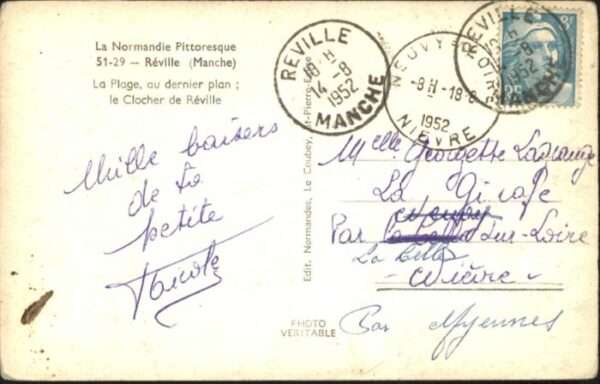 La Normandie Pittoresque
51-29 — Réville (Manche)
La Plage, au dernier plan ;
le Clocher de Réville
Mille baisers
de ta
petite
Nicole
Edit. Normandes, Le Goubey, St-Pierre-Eglise
PHOTO
VERITABLE
REVILLE
18 H
14-8
1952
MANCHE
NEUVY
-8H-18-8
1952
NIEVRE
REVILLE
1952
MANCHE
Melle Georgette
La Girafe
Par sur-Loire
La Celle
Nièvre
Par Myennes